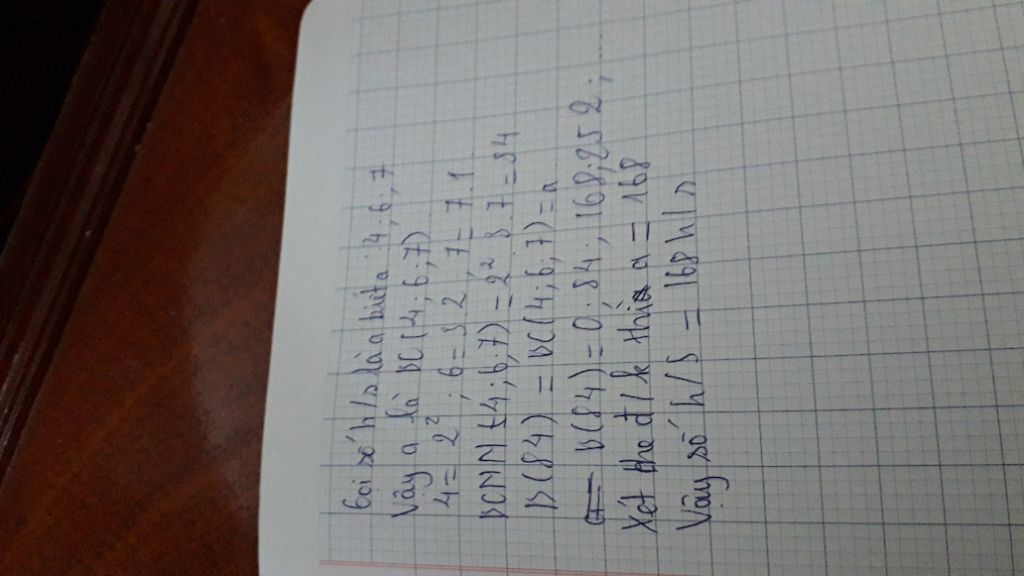 Gọi số h/s là a biết a : 4 ; 6 ; 7
Vậy a là BC(4 ; 6 ; 7)
4 = 2² ; 6 = 3.2 , 7 = 7.1
BCNN (4 ; 6 ; 7) = 2² . 3 . 7 = 84
B(84) = BC(4 ; 6 ; 7) = a
B(84) = 0 ; 84 ; 168 ; 252 ; .....
Xét the đ/k thì a = 168
Vậy số h/s = 168 h/s